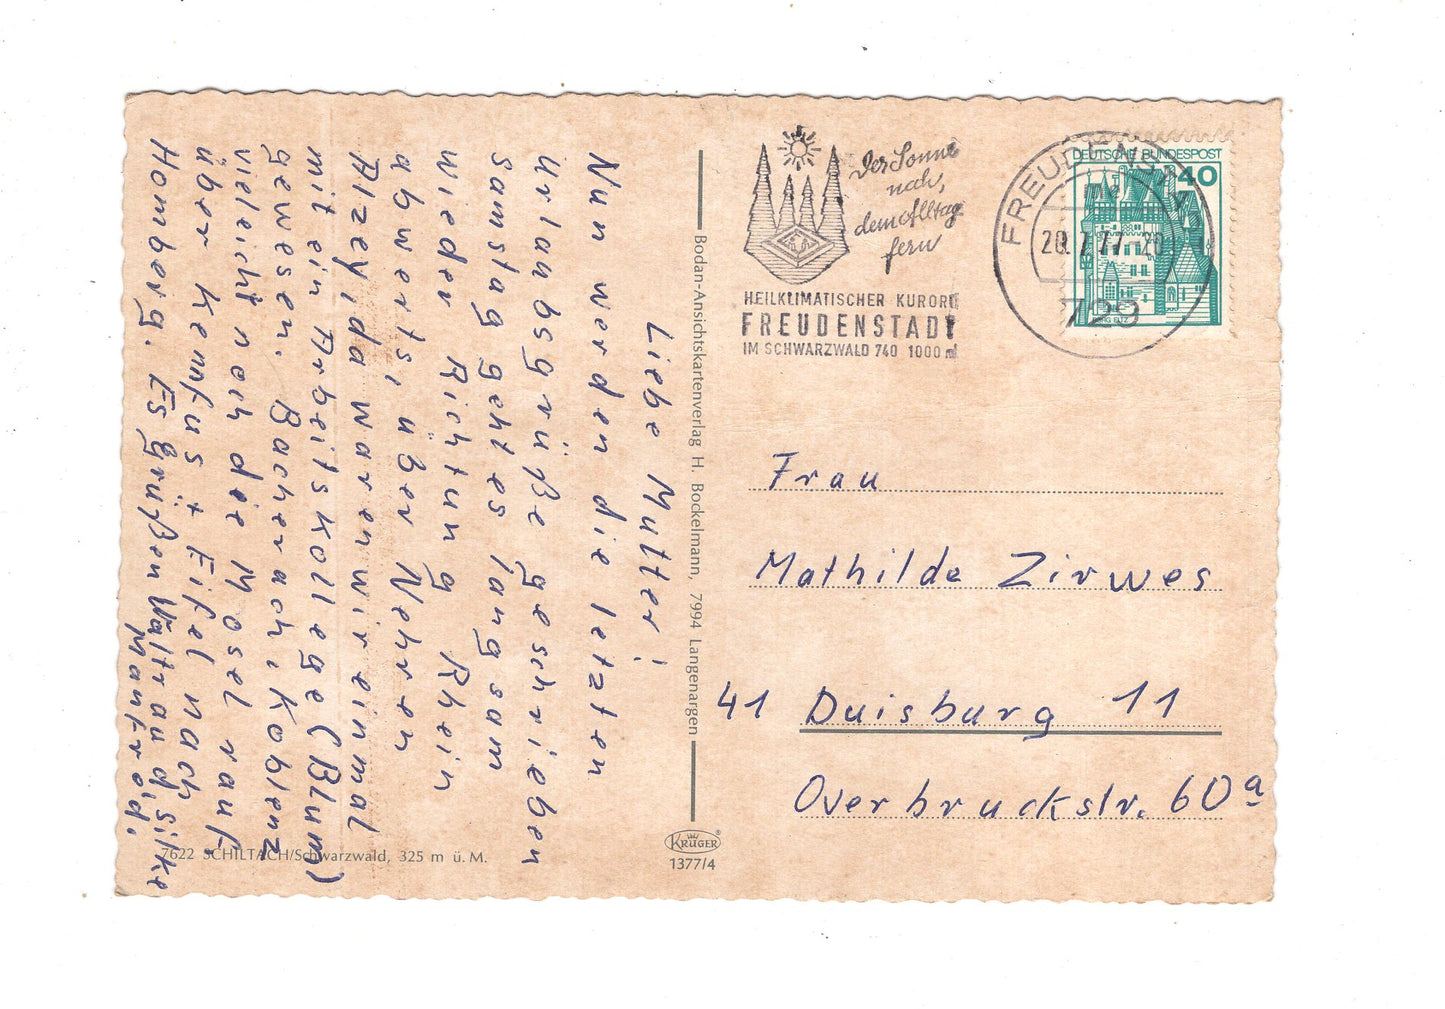 Liebe Mutter!
Nun werden die letzten
Urlaubsgrüße geschrieben
Samstag geht es langsam
wieder Richtung Rhein
abwerts, über Nehren
Alzey, da waren wir einmal
mit ein Arbeitskollege (Blum)
gewesen. Bacherach, Koblenz
vieleicht noch die Mosel rauf
über Kennfus + Eifel nach
Homberg. Es grüßen Waltraud, Silke
Manfred.
7622 SCHILTACH/Schwarzwald, 325 m ü. M.
Bodan-Ansichtskartenverlag H. Bockelmann, 7994 Langenargen
KRÜGER
1377/4
Der Sonne
nah,
dem Alltag
fern
HEILKLIMATISCHER KURORT
FREUDENSTADT
IM SCHWARZWALD 740 1000 m
FREUDENSTADT
20.7.77-20
729
DEUTSCHE BUNDESPOST
40
BURG ELTZ
Frau
Mathilde Zirwes
41 Duisburg 11
Overbruckstr. 60a